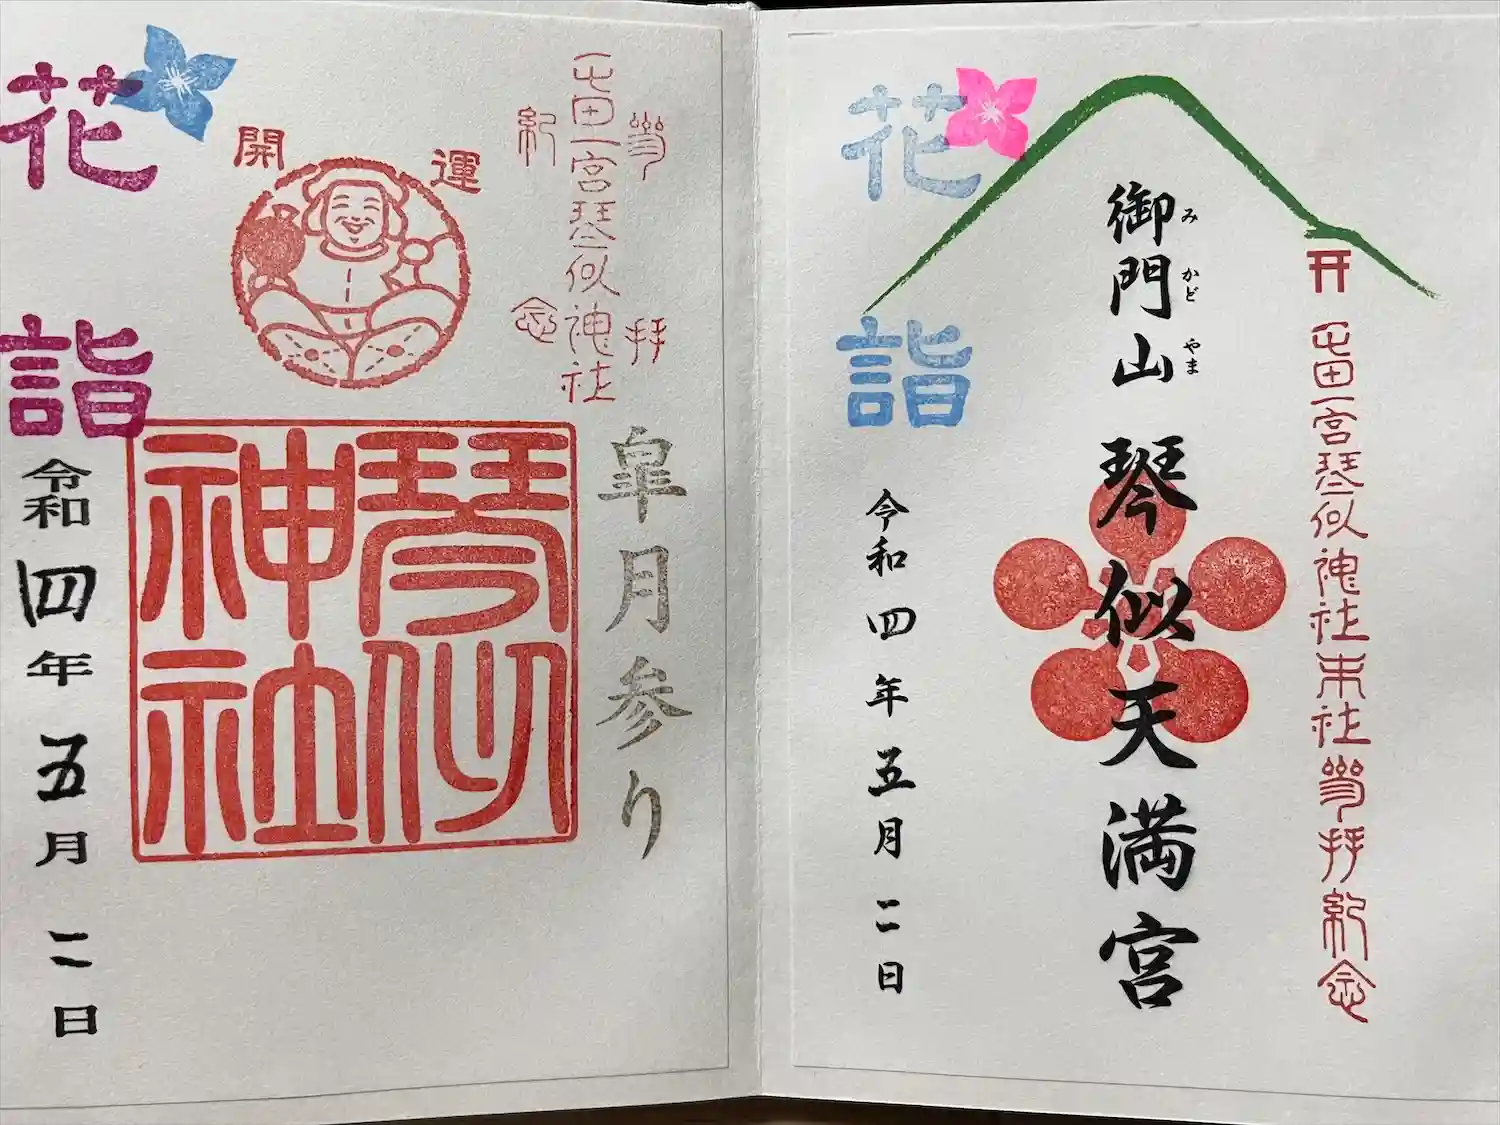 屯田一宮琴似神社末社参拝紀念
御門山 琴似天満宮
みかどやま
花詣
令和四年五月二日
参拝
屯田一宮琴似神社
紀念
皐月参り
開運
琴似
神社
花詣
令和四年五月二日